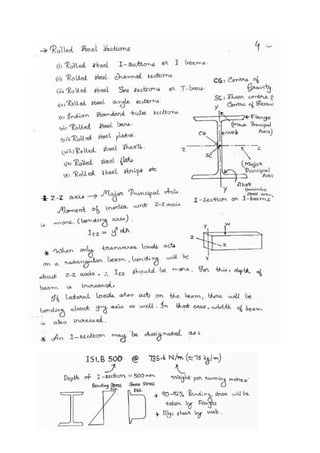 4
→ Rolled Steel Sections
(i) Rolled steel I-sections or I beams.
(ii) Rolled steel channel sections.
(iii) Rolled steel Tee sections or T-bars.
(iv) Rolled steel angle sections.
(v) Indian Standard tube sections
(vi) Rolled steel bars.
(vii) Rolled steel plates.
(viii) Rolled steel sheets.
(ix) Rolled steel flats
(x) Rolled steel strips etc
CG: Centre of Gravity
SC: Shear centre
Y
Flange
(Minor Principal Axis)
CG
Web
Z
Z
SC
(Major Principal Axis)
Y
I-section or I-beams
* Z-Z axis → Major Principal axis.
Moment of inertia wrt Z-Z axis
is more. (bending axis)
Izz = y² dA
Y
W
Z
Z
Y
* When only transverse loads acts
on a rectangular beam, bending will be
about Z-Z axis. ∴ Izz should be more. For this depth of
beam is increased.
If Lateral loads also act on the beam, there will be
bending about y-y axis as well. In that case, width of beam
is also increased.
* An I-section may be designated as:
ISLB 500 @ 735.6 N/m (≈ 75 kg/m)
Depth of I-section = 500mm
Weight per running metre
Bending Stress Dis.
Shear Stress Dis.
* 90-92% Bending stress will be
taken by Flanges
* Mly shear by web.